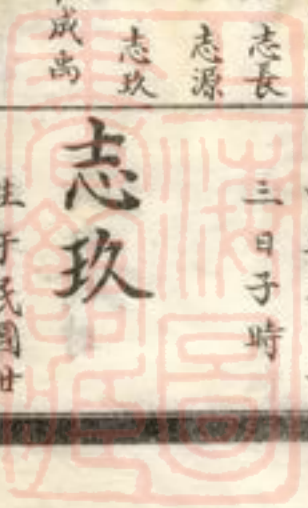 志長
志源
志玖
成禹
三日子時
志玖
生于民國廿